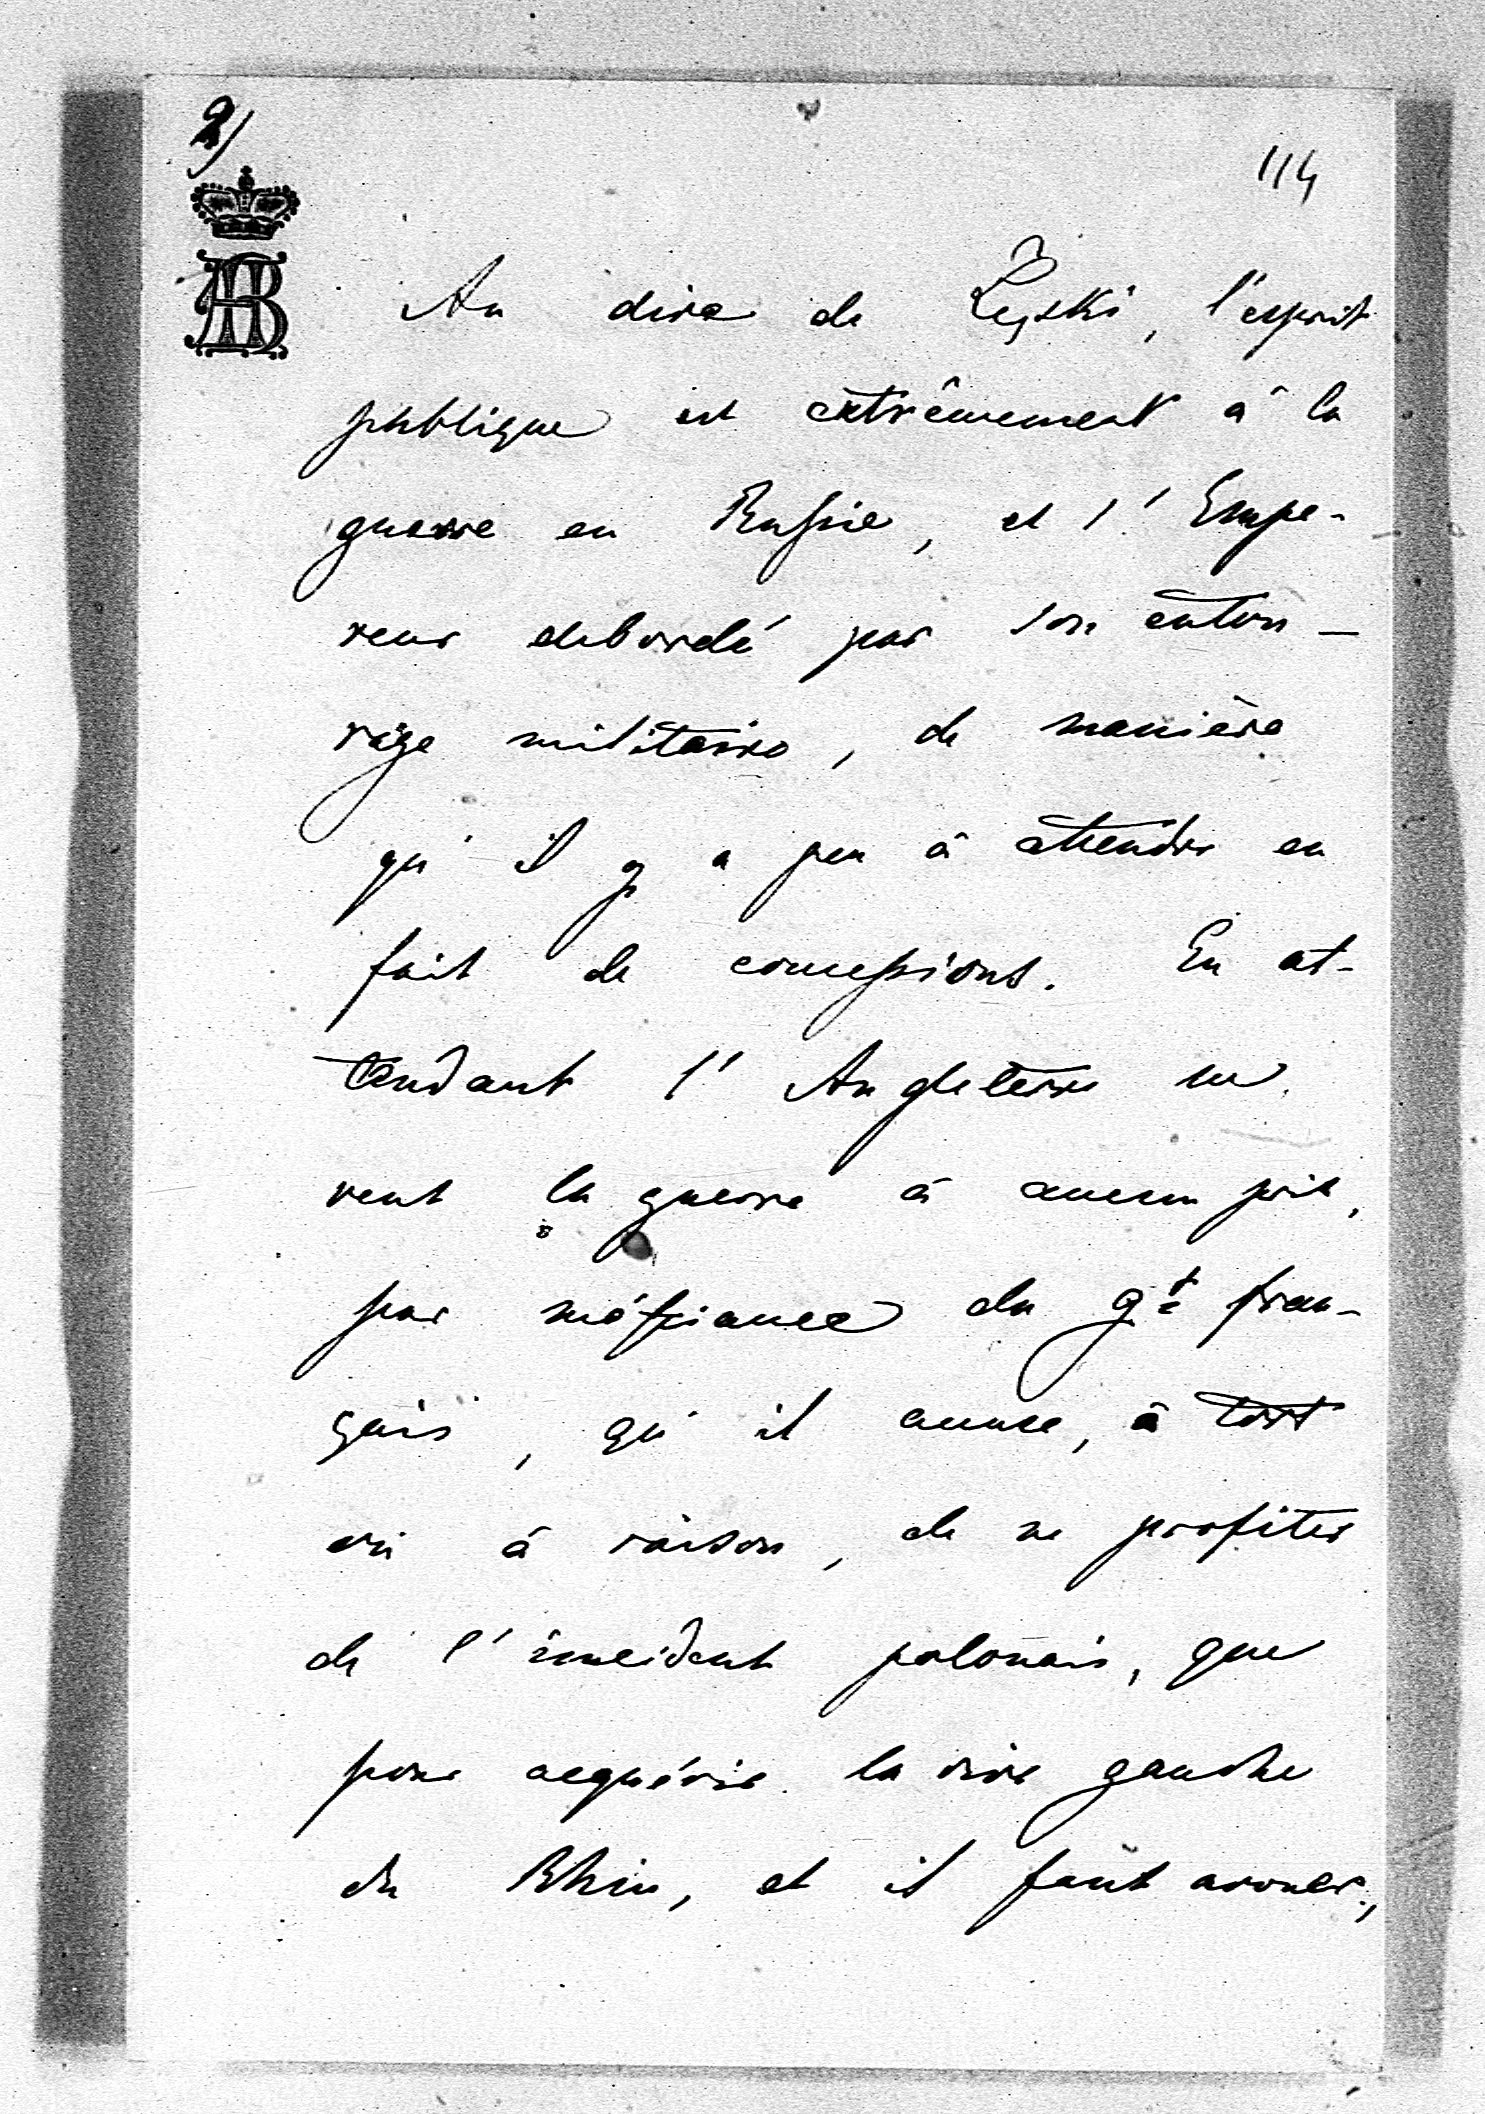 2)
114
AB
Au dire de Łęski, l'esprit
publique est extrêmement à la
guerre en Russie, et l'Empe-
reur debordé par son entou-
rage militaire, de manière
qu'il y a peu à attendre en
fait de concessions. En at-
tendant l'Angleterre ne
veut la guerre à aucun prix,
par méfiance du gt fran-
çais, qu'il accuse, à tort
ou à raison, de ne profiter
de l'incident polonais, que
pour acquérir la rive gauche
du Rhin, et il faut avouer,